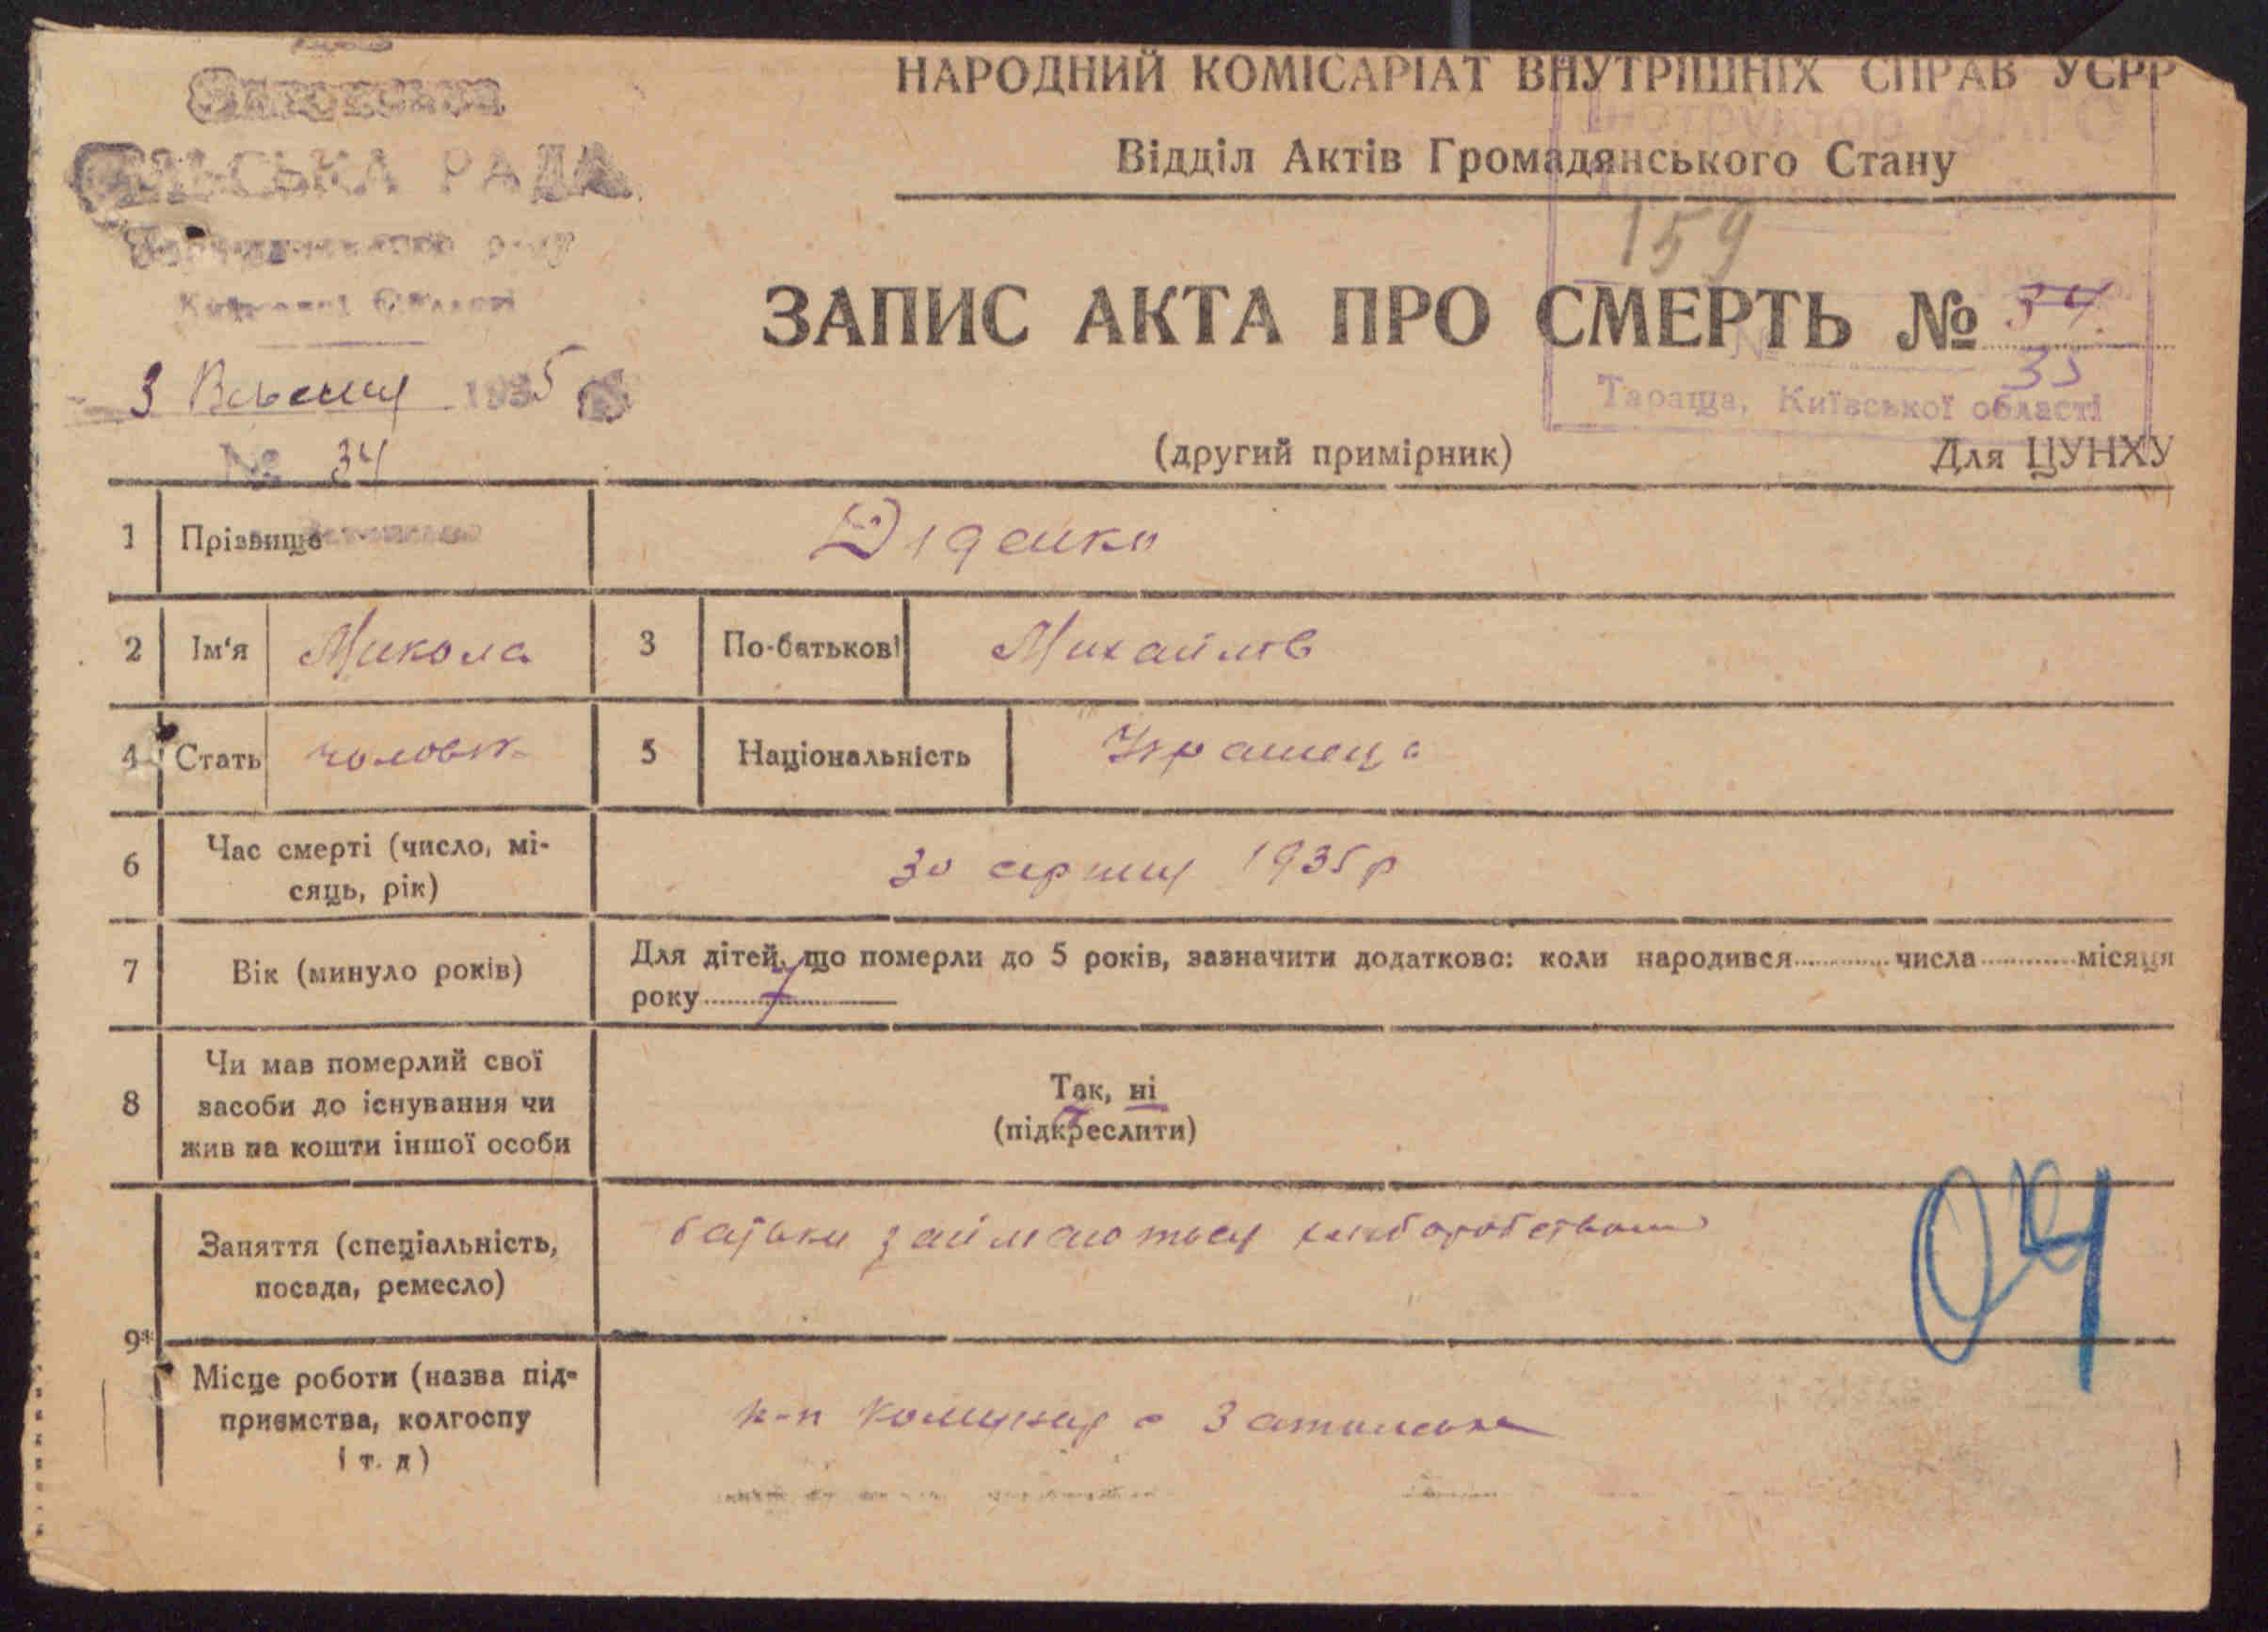 НАРОДНИЙ КОМІСАРІАТ ВНУТРІШНІХ СПРАВ УСРР
Відділ Актів Громадянського Стану
СІЛЬСЬКА РАДА
Київської Області
3 Вересня 1935
№ 34
Інструктор
159
ЗАПИС АКТА ПРО СМЕРТЬ № 34
35
Тараща, Київської області
(другий примірник)
Для ЦУНХУ
1 Прізвище Діденко
2 Ім'я Микола 3 По-батькові Михайлов
4 Стать чоловік 5 Національність Українець
6 Час смерті (число, мі-
сяць, рік)
30 серпня 1935 р
7 Вік (минуло років)
Для дітей, що померли до 5 років, зазначити додатково: коли народився числа місяця
року
7
8 Чи мав померлий свої
засоби до існування чи
жив на кошти іншої особи
Так, ні
(підкреслити)
9* Заняття (спеціальність,
посада, ремесло)
батьки займаються хліборобством
Місце роботи (назва під-
приємства, колгоспу
і т. д)
04